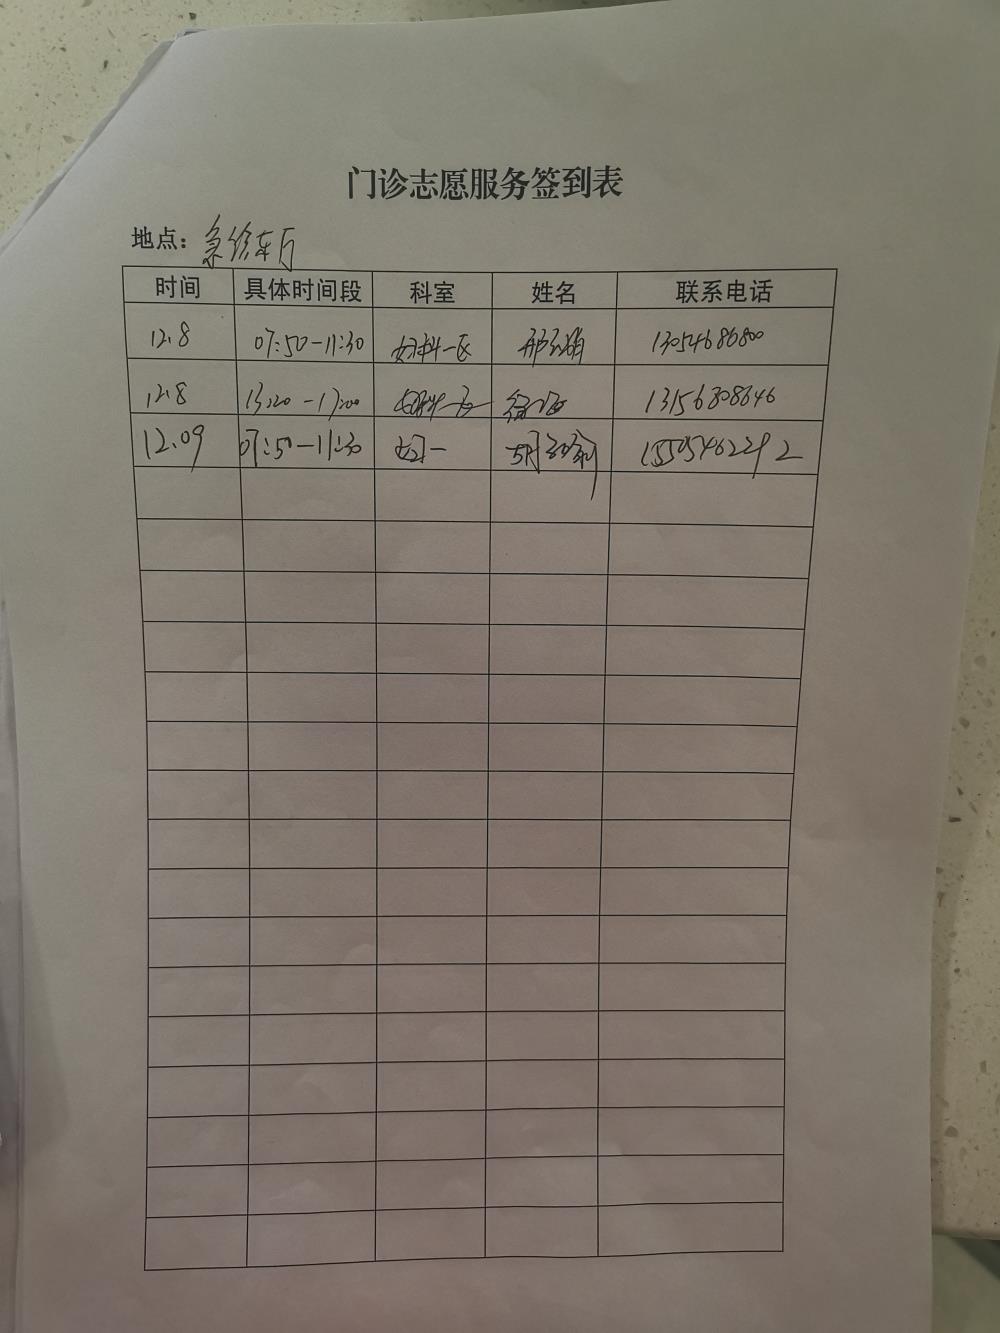 门诊志愿服务签到表
地点：急诊东厅
时间 具体时间段 科室 姓名 联系电话
12.8 07:50-11:30 妇科一区 13054686800
12.8 13:20-17:00 妇科一区 13156808646
12.09 07:50-11:30 妇一